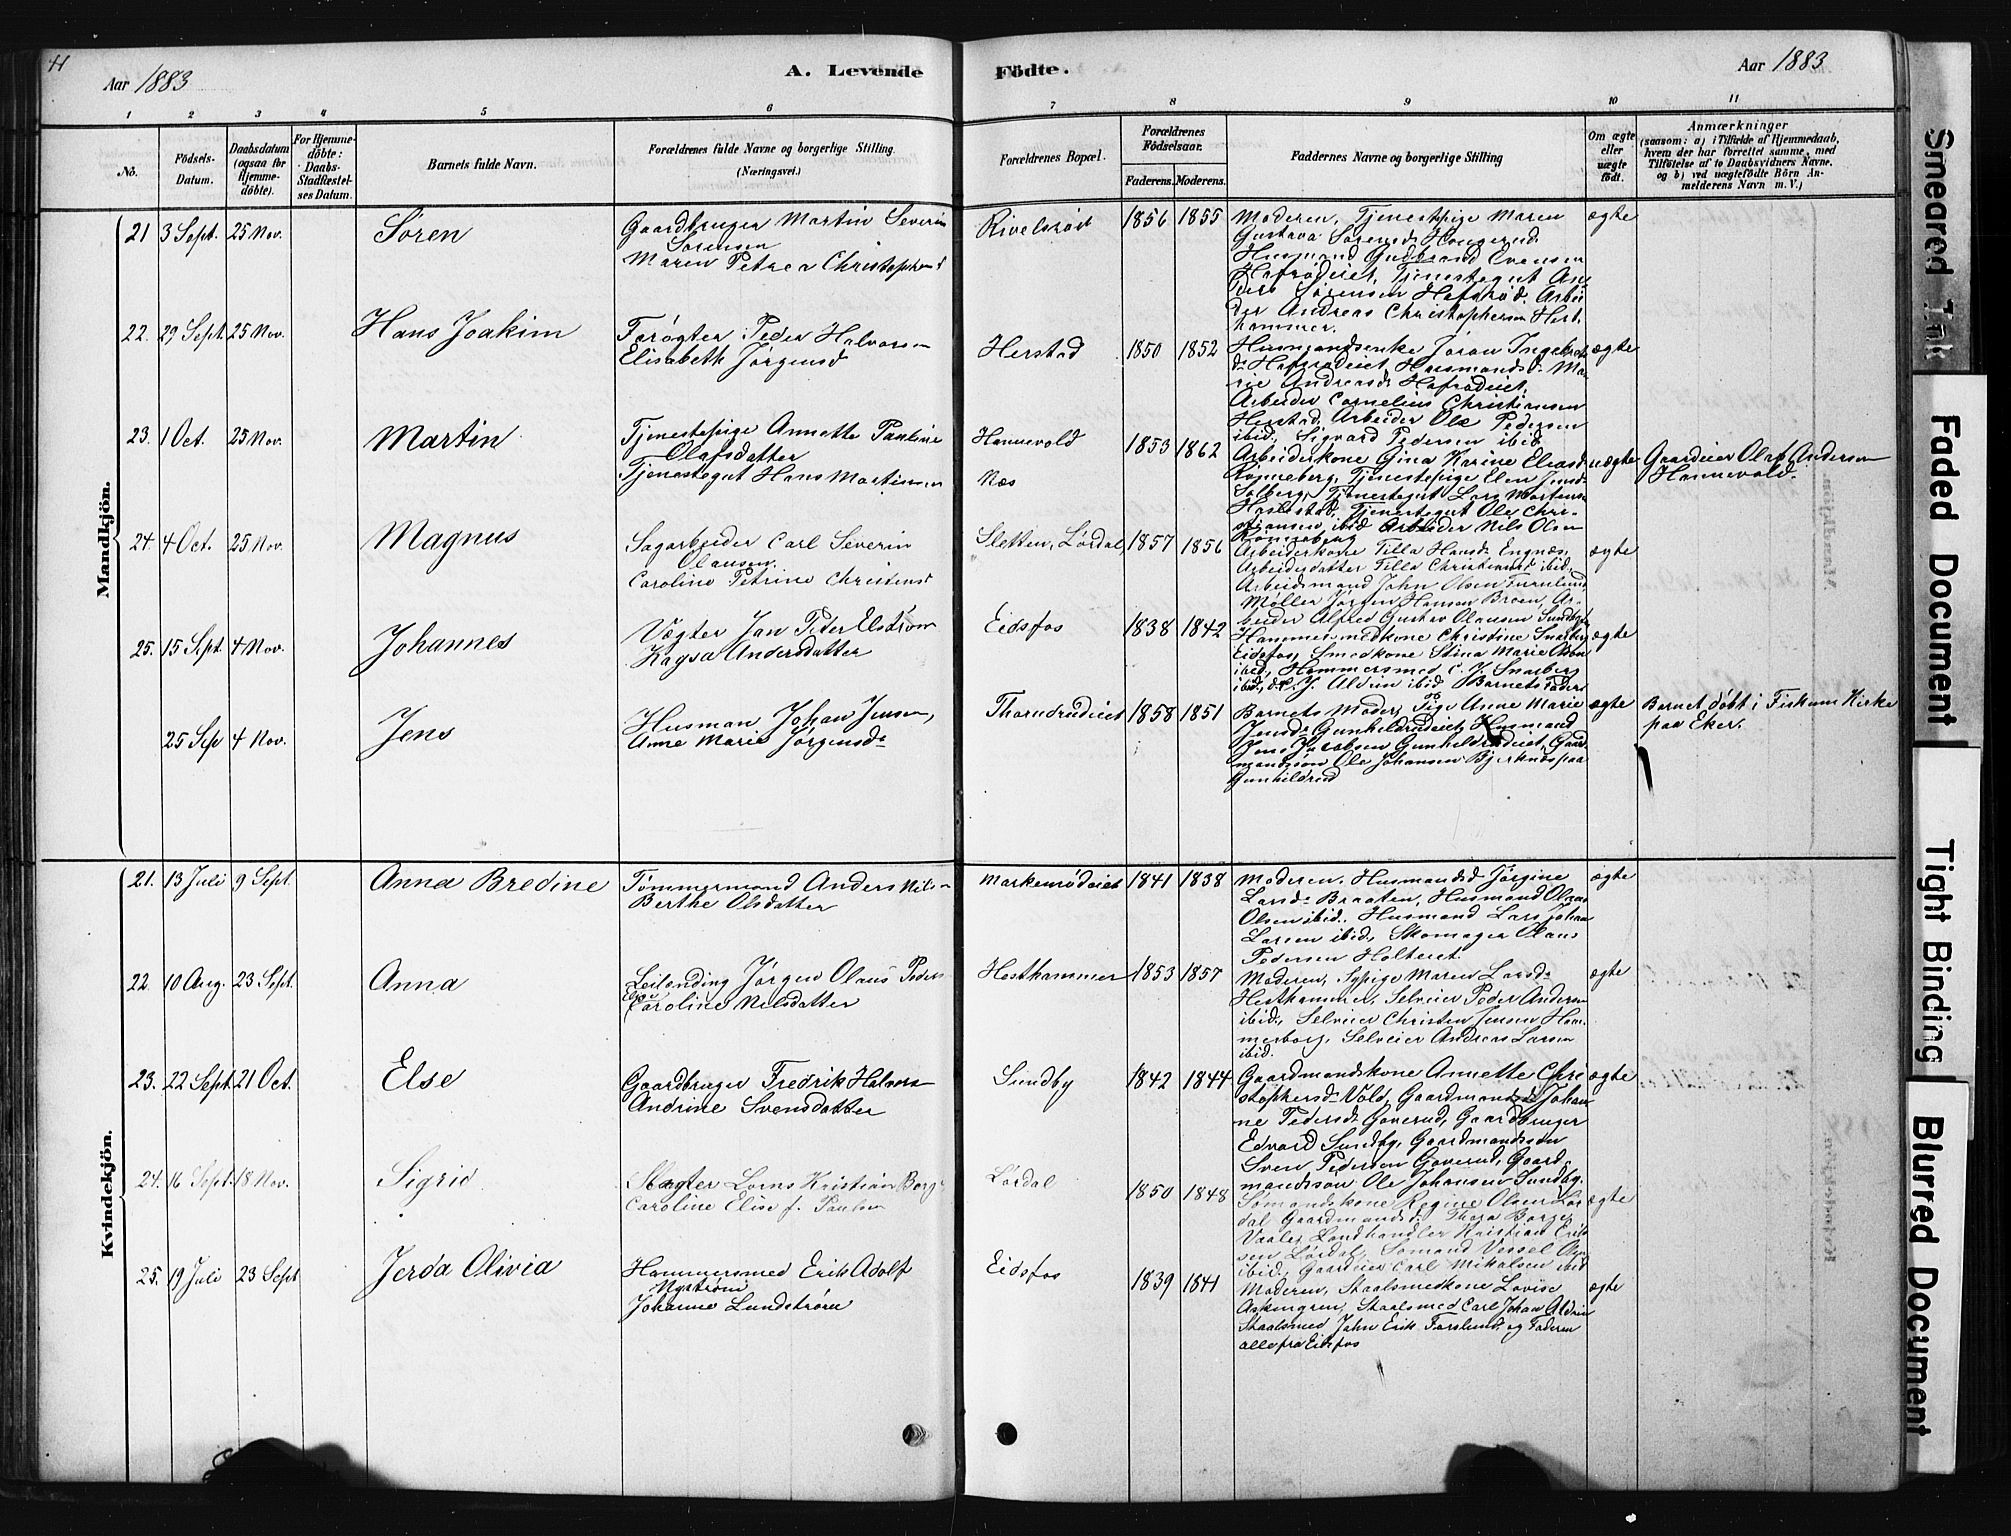 Aar 1883
A. Levende
Födte.
Aar 1883
1 2 3 4 5 6 7 8 9 10 11
No.
Födsels-Datum.
Daabsdatum (ogsaa for Hjemme-döbte).
For Hjemme-döbte: Daabs-Stadfæstel-ses Datum.
Barnets fulde Navn.
Forældrenes fulde Navne og borgerlige Stilling.
(Næringsvei.)
Forældrenes Bopæl.
Forældrenes Födselsaar.
Faderens. Moderens.
Faddernes Navne og borgerlige Stilling
Om ægte eller uægte födt.
Anmærkninger
(saasom: a) i Tilfælde af Hjemmedaab,
hvem der har forrettet samme, med
Tilföielse af to Daabsvidners Navne.
og b) ved uægtefödte Börn An-
melderens Navn m. V.)
Mandkjön.
21 3 Sept. 25 Nov. Søren
Gaardbruger Martin Severin
Sørensen
Maren Petrea Christophersd
Rivelsrød 1856 1855
Moderen, Tjenestepige Maren
Gustava Sørensd. Haugerud
Husmand Gudbrand Evensen
Hafrødeiet, Tjenestegut An-
ders Sørensen Hafsrød, Arbei-
der Andreas Christophersen Hest-
hammer.
ægte
22. 29 Sept. 25 Nov. Hans Joakim
Farøgter Peder Halvorsen
Elisabeth Jørgensd
Herstad 1850 1852
Husmandsenke Joran Ingebrets
d. Hafsrødeiet, Husmandsd. Ma-
rie Andreasd. Hafrødeiet,
Arbeider Cornelius Christiansen
Herstad, Arbeider Ole Pedersen
ibid, Sigvard Pedersen ibid
ægte
23. 1 Oct. 25 Nov. Martin
Tjenestepige Annette Pauline
Olafsdatter
Tjenestegut Hans Martinsen
Hannevold
Næs
1853 1862
Arbeiderkone Gina Karine Eliasd
Rønneberg, Tjenestepige Elen Jensd
Solberg, Tjenestegut Lars Mortens
Haslestad, Tjenestegut Ole Chri-
stiansen, ibid Arbeider Nils Olsen
Rønneberg
uægte
Gaardeier Olaf Andersen
Hannevold.
24. 4 Oct. 25 Nov. Magnus
Sagarbeider Carl Severin
Olausen.
Caroline Petrine Christensd
Sletten, Lørdal 1857 1856
Arbeiderkone Tilla Hansd. Engnæs,
Arbeidsdatter Tilla Christiansd ibid,
Arbeidsmand John Olsen Furulund
Møller Jørgen Hansen Broen, Ar-
beider Alfred Gustav Olausen Sundby
ægte
25. 15 Sept 4 Nov. Johannes
Vægter Jan Peter Elstrøm
Kaysa Andersdatter
Eidsfos 1838 1842
Hammersmedkone Christine Snarberg
Eidsfos, Smedkone Stina Marie Olsen
ibid, Hammersmed C. J. Snarberg
ibid, C. J. Aldrin ibid Barnets Fader
ægte
25 Sep 4 Nov. Jens
Husman Johan Jensen,
Anne Marie Jørgensd.
Thorndrudeiet 1858 1851
Barnets Moder, og Pige Anne Marie
Jensd. Gunhildrudeiet, Husmand
Jens Jacobsen Gunhildrudeiet, Gaard
mandssøn Ole Johansen Bjerknes paa
Gunhildrud
ægte
Barnet døbt i Fiskum Kirke
paa Eker.
Kvindekjön.
21. 13 Juli 9 Sept. Anna Bredine
Tømmermand Anders Nilsen
Berthe Olsdatter
Markemrødeiet 1841 1838
Moderen, Husmandsd. Jørgine
Larsd. Braaten, Husmand Olaus
Olsen ibid., Husmand Lars Johan
Larsen ibid, Skomager Olaus
Pedersen Holteret
ægte
22. 10 Aug. 23 Sept. Anna
Leilænding Jørgen Olaus Peders
Elise Caroline Nilsdatter
Hesthammer 1853 1857
Moderen, Sypige Maren Larsd.
Hesthammer, Selveier Peder Andersen
ibid, Selveier Christen Jensen Ham-
merborg, Selveier Andreas Larsen
ibid.
ægte
23. 22 Sept. 21 Oct. Else
Gaardbruger Fredrik Halvors
Andrine Svensdatter
Sundby 1842 1844
Gaardmandskone Annette Chri
stophersd. Vold, Gaardmandsd. Johan
ne Pedersd. Goverud, Gaardbruger
Edvard Sundby, Gaardmandssøn
Sven Pedersen Goverud, Gaard-
mandssøn Ole Johansen Sundby.
ægte
24. 16 Sept. 18 Nov. Sigrid
Slagter Lorns Kristian Borge
Caroline Elise f. Paulsen
Lørdal 1850 1848
Sømandskone Regine Olsen Lør
dal Gaardmandsd. Thora Borge
Vaale, Landhandler Kristian Erik
sen Lørdal, Sømand Vessel
ibid, Gaardeier Carl Mikalsen ibid
ægte
25. 19 Juli 23 Sept Jerda Olivia
Hammersmed Erik Adolf
Nystrøm
Johanne Lundstrøm
Eidsfos 1839 1841
Moderen, Staalsmedkone Lovise
Askengren, Staalsmed Carl Johan Aldrin
Staalsmed John Erik Forslund og Faderen
alle fra Eidsfos
ægte
Smeared Ink
Faded Document
Tight Binding
Blurred Document